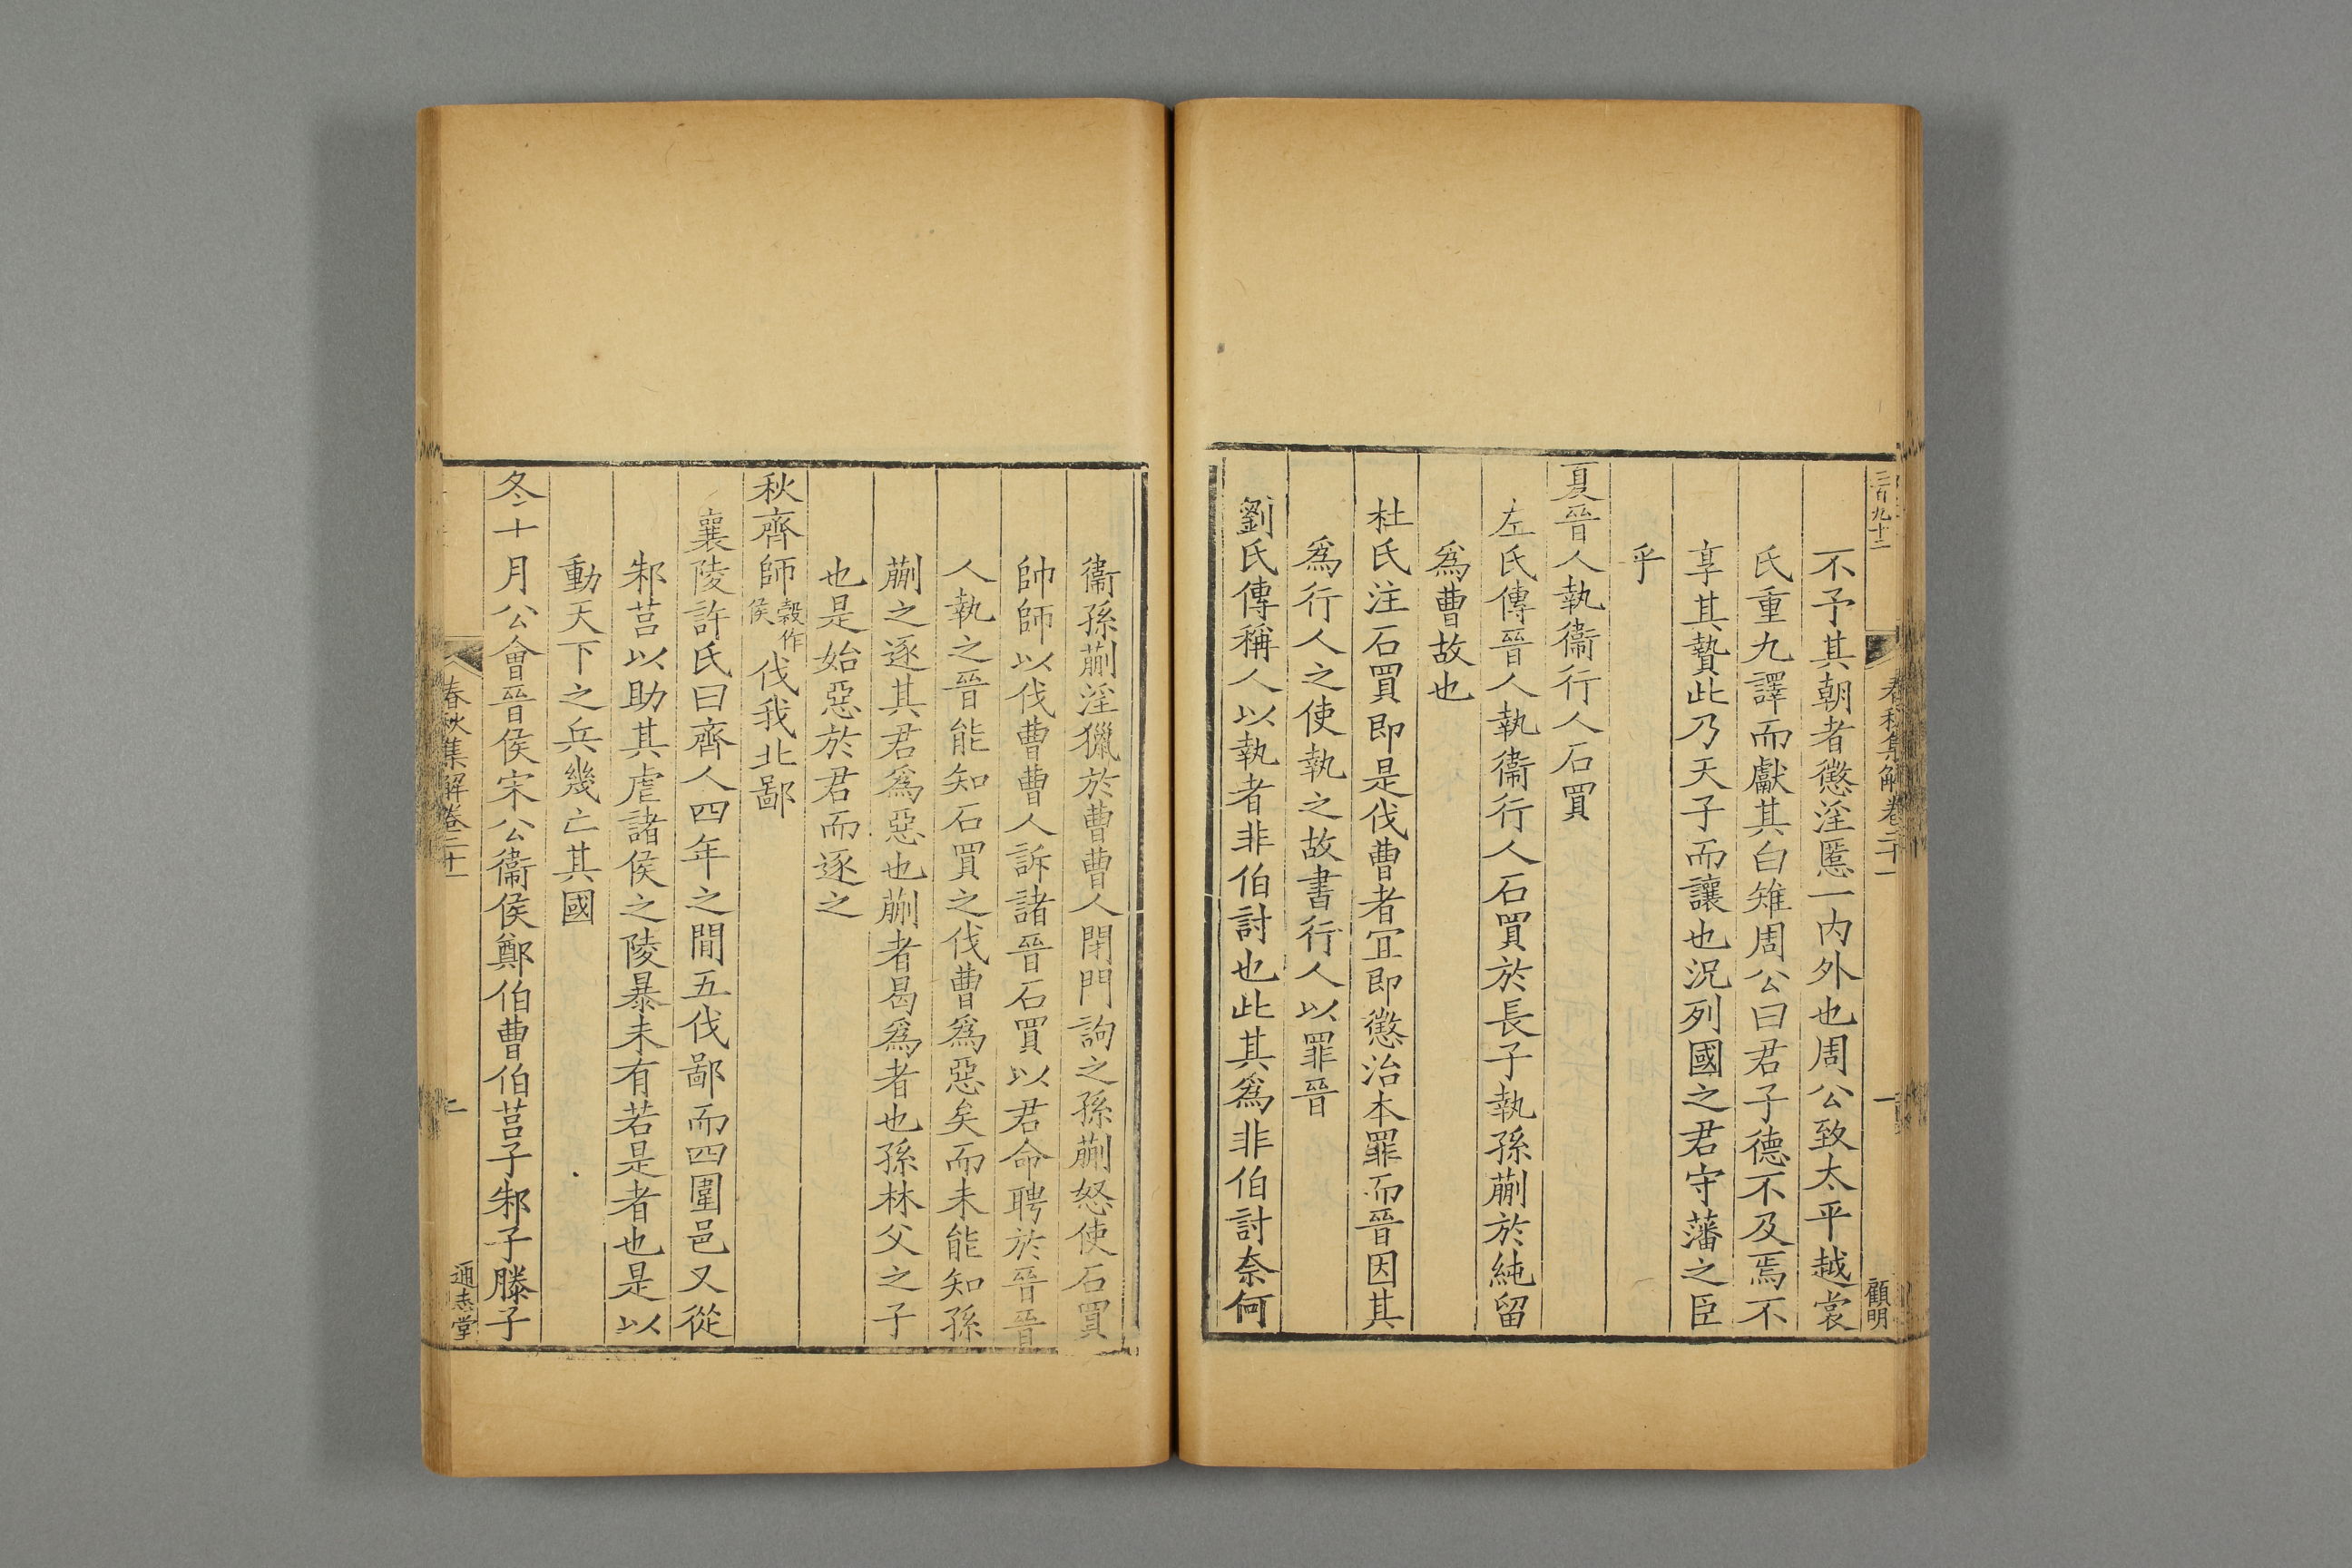 三百九十二
春秋集解卷二十一
一
顧明
不予其朝者懲淫慝一内外也周公致太平越裳
氏重九譯而獻其白雉周公曰君子德不及焉不
享其贄此乃天子而讓也況列國之君守藩之臣
乎
夏晉人執衞行人石買
左氏傳晉人執衞行人石買於長子執孫蒯於純留
爲曹故也
杜氏注石買即是伐曹者宜即懲治本罪而晉因其
爲行人之使執之故書行人以罪晉
劉氏傳稱人以執者非伯討也此其爲非伯討奈何
衞孫蒯淫獵於曹曹人閉門詢之孫蒯怒使石買
帥師以伐曹曹人訴諸晉石買以君命聘於晉晉
人執之晉能知石買之伐曹爲惡矣而未能知孫
蒯之逐其君爲惡也蒯者曷爲者也孫林父之子
也是始惡於君而逐之
秋齊師穀作侯伐我北鄙
襄陵許氏曰齊人四年之間五伐鄙而四圍邑又從
邾莒以助其虐諸侯之陵暴未有若是者也是以
動天下之兵幾亡其國
冬十月公會晉侯宋公衞侯鄭伯曹伯莒子邾子滕子
春秋集解卷二十一
二
通志堂